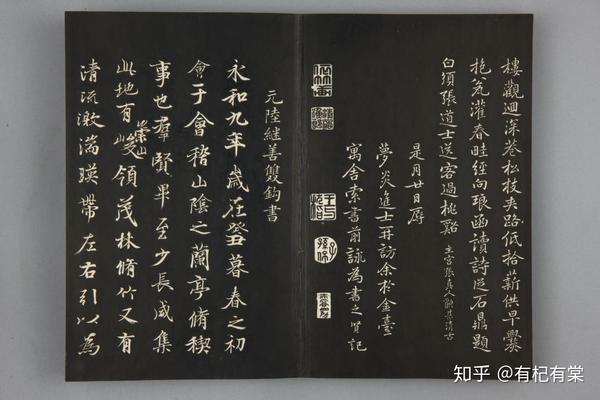 樓觀迴深蒼松枝夾路低拾薪供早爨
抱瓮灌春畦經向琅函讀詩從石鼎題
白須張道士送客過桃谿
是月廿日孱
夢炎進士再訪余於金臺
寓舍索書前詠為書之賢記
元陸继善雙鈎書
永和九年歲在癸丑暮春之初
會于會稽山陰之蘭亭脩稧
事也羣賢畢至少長咸集
此地有崇山峻領茂林脩竹又有
清流激湍暎帶左右引以為
知乎 @有杞有棠